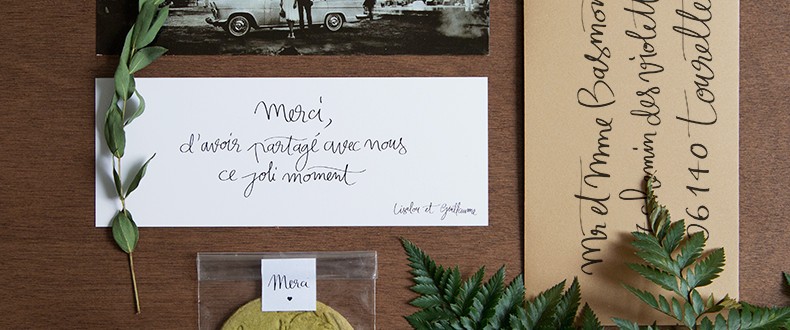 Merci,
d'avoir partagé avec nous
ce joli moment
Lisalou et Guillaume
Merci
Mr et Mme Basmon
chemin des violett
06140 Tourrette